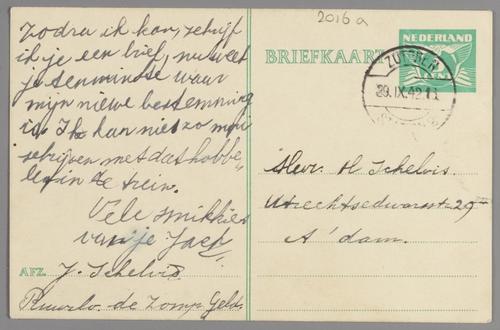 2016a
Zodra ik kan, schrijf
ik je een brief, nu weet
je tenminste waar
mijn niewe bestemming
is. Ik kan niet zo mooi
schrijven met dat hobbe-
len in de trein.
Vele smikkies
van je Jaap
AFZ. J. Schelvis
Ruurlo. de Zomp Geld.
BRIEFKAART
NEDERLAND
CENT
ZUTPHEN
29.IX.42 11
Mevr. H Schelvis
Utrechtsedwarsst-29
A'dam.